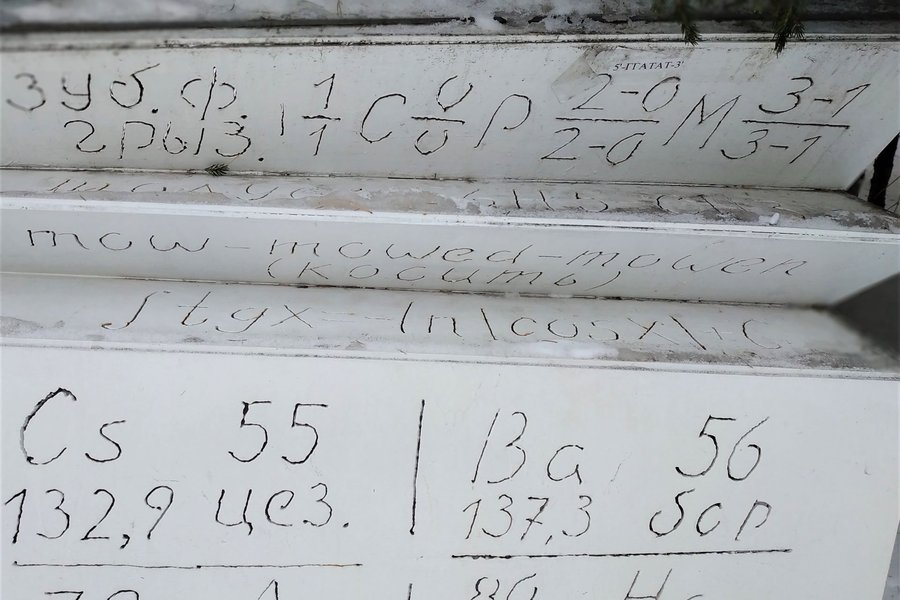 зуб. ф. I 1/1 C 0/0 P 2-0/2-0 M 3-1/3-1
грыз.
mow - mowed - mowen
(косить)
∫ tgx = - ln|cosx| + C
Cs 55 | Ba 56
132,9 цез. | 137,3 бар